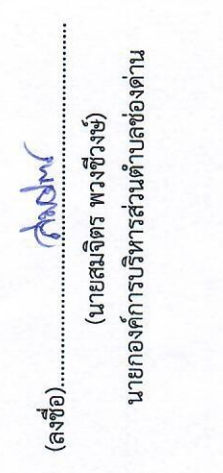 (ลงชื่อ)
(นายสมจิตร พวงชีวงษ์)
นายกองค์การบริหารส่วนตำบลช่องด่าน